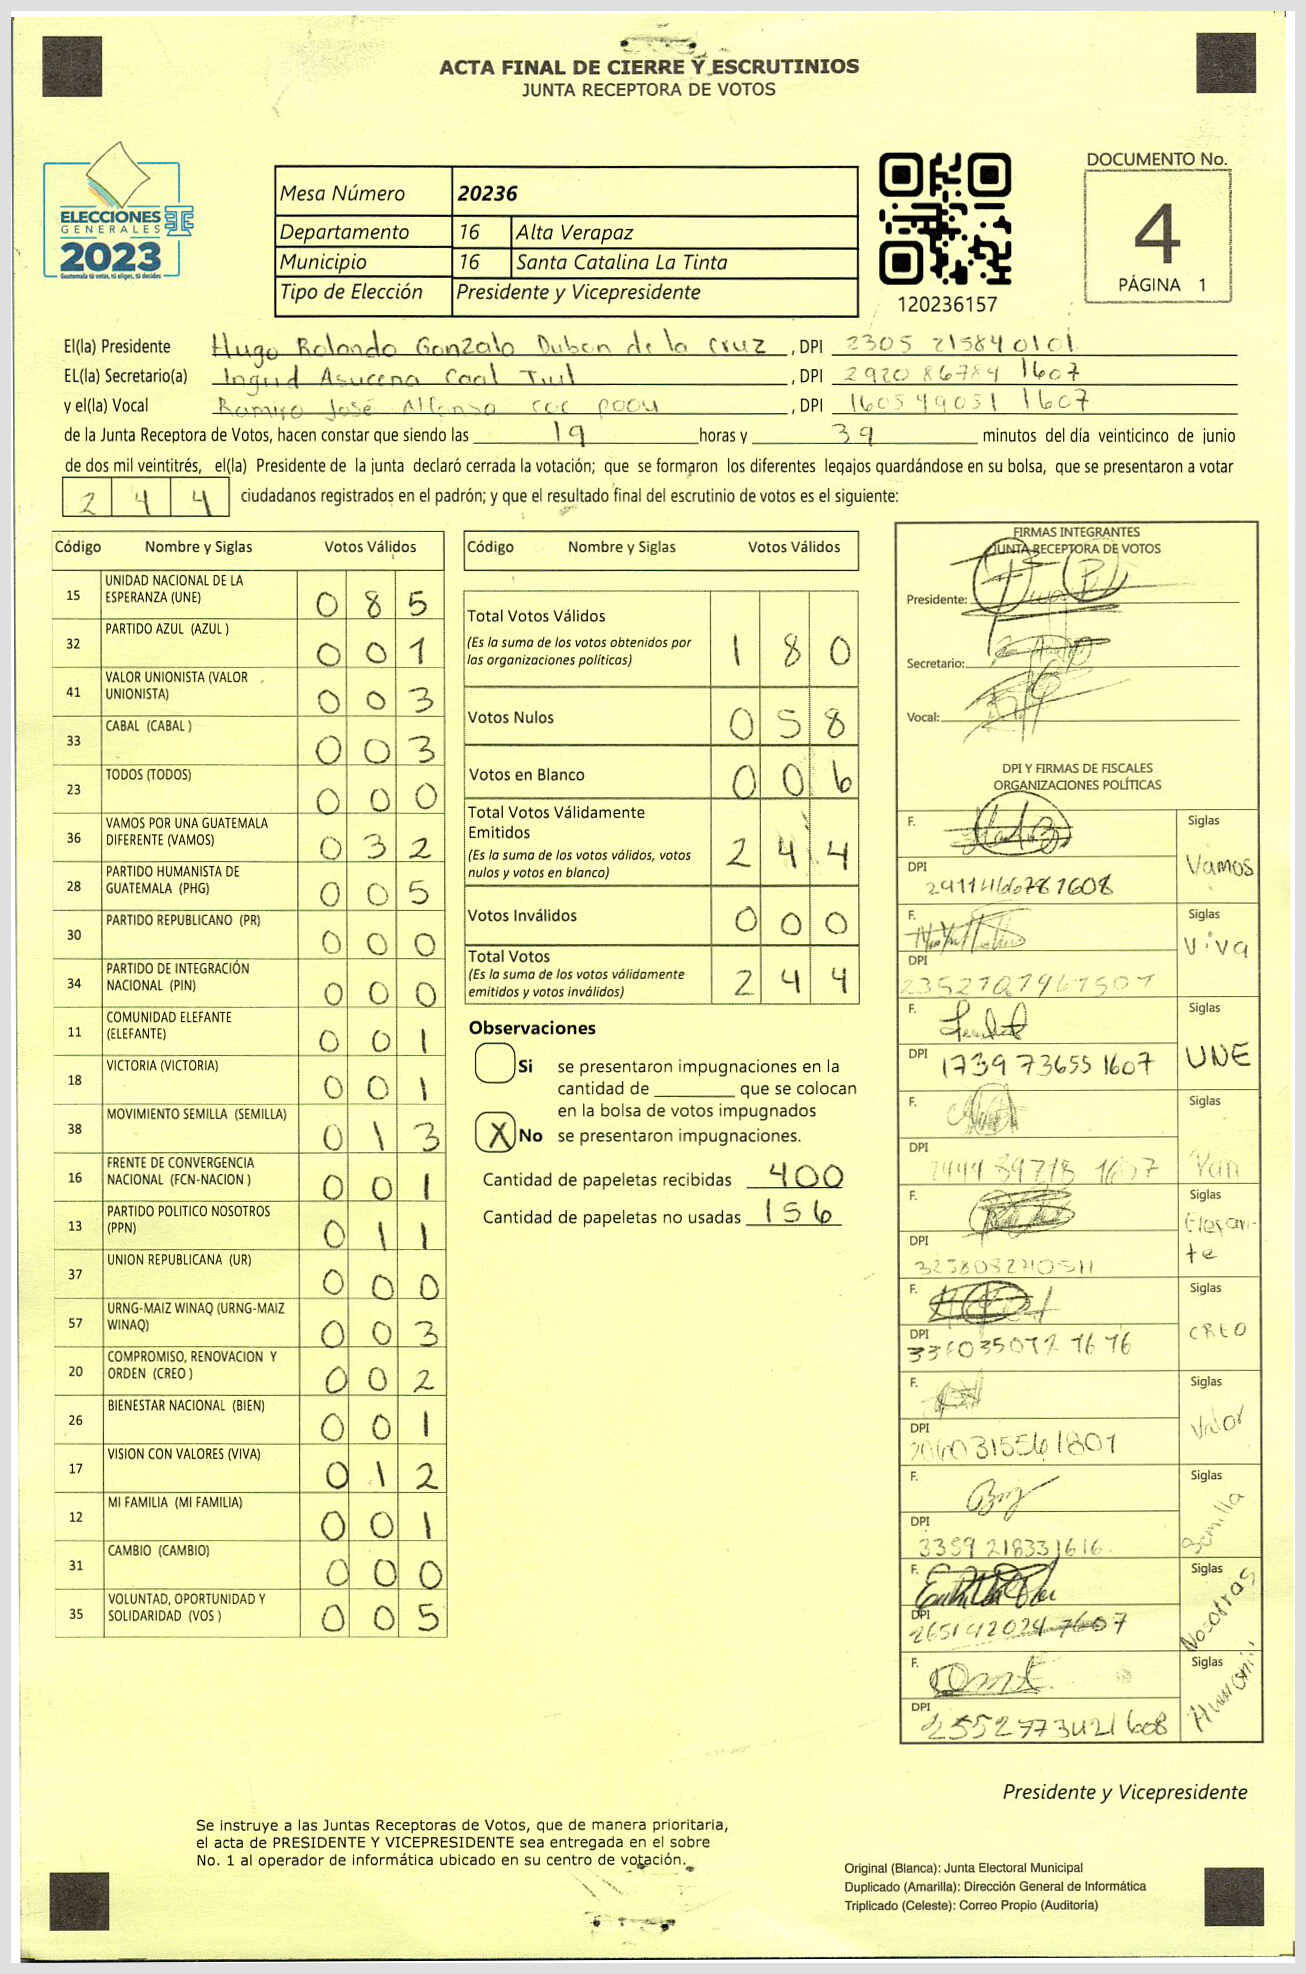 ACTA FINAL DE CIERRE Y ESCRUTINIOS
JUNTA RECEPTORA DE VOTOS
ELECCIONES
GENERALES
2023
Guatemala tú votas, tú eliges, tú decides
Mesa Número 20236
Departamento 16 Alta Verapaz
Municipio 16 Santa Catalina La Tinta
Tipo de Elección Presidente y Vicepresidente
120236157
DOCUMENTO No.
4
PÁGINA 1
El(la) Presidente Hugo Rolando Gonzalo Dubon de la Cruz , DPI 2305 21584 0101
EL(la) Secretario(a) Ingrid Asucena Caal Tiul , DPI 2920 86784 1607
y el(la) Vocal Ramiro José Alfonso coc poou , DPI 1605 49051 1607
de la Junta Receptora de Votos, hacen constar que siendo las 19 horas y 39 minutos del día veinticinco de junio
de dos mil veintitrés, el(la) Presidente de la junta declaró cerrada la votación; que se formaron los diferentes legajos guardándose en su bolsa, que se presentaron a votar
2 4 4 ciudadanos registrados en el padrón; y que el resultado final del escrutinio de votos es el siguiente:
Código Nombre y Siglas Votos Válidos
15 UNIDAD NACIONAL DE LA ESPERANZA (UNE) 0 8 5
32 PARTIDO AZUL (AZUL ) 0 0 1
41 VALOR UNIONISTA (VALOR UNIONISTA) 0 0 3
33 CABAL (CABAL ) 0 0 3
23 TODOS (TODOS) 0 0 0
36 VAMOS POR UNA GUATEMALA DIFERENTE (VAMOS) 0 3 2
28 PARTIDO HUMANISTA DE GUATEMALA (PHG) 0 0 5
30 PARTIDO REPUBLICANO (PR) 0 0 0
34 PARTIDO DE INTEGRACIÓN NACIONAL (PIN) 0 0 0
11 COMUNIDAD ELEFANTE (ELEFANTE) 0 0 1
18 VICTORIA (VICTORIA) 0 0 1
38 MOVIMIENTO SEMILLA (SEMILLA) 0 1 3
16 FRENTE DE CONVERGENCIA NACIONAL (FCN-NACION ) 0 0 1
13 PARTIDO POLITICO NOSOTROS (PPN) 0 1 1
37 UNION REPUBLICANA (UR) 0 0 0
57 URNG-MAIZ WINAQ (URNG-MAIZ WINAQ) 0 0 3
20 COMPROMISO, RENOVACION Y ORDEN (CREO ) 0 0 2
26 BIENESTAR NACIONAL (BIEN) 0 0 1
17 VISION CON VALORES (VIVA) 0 1 2
12 MI FAMILIA (MI FAMILIA) 0 0 1
31 CAMBIO (CAMBIO) 0 0 0
35 VOLUNTAD, OPORTUNIDAD Y SOLIDARIDAD (VOS ) 0 0 5
Código Nombre y Siglas Votos Válidos
Total Votos Válidos 1 8 0
(Es la suma de los votos obtenidos por
las organizaciones políticas)
Votos Nulos 0 5 8
Votos en Blanco 0 0 6
Total Votos Válidamente
Emitidos 2 4 4
(Es la suma de los votos válidos, votos
nulos y votos en blanco)
Votos Inválidos 0 0 0
Total Votos 2 4 4
(Es la suma de los votos válidamente
emitidos y votos inválidos)
Observaciones
Si se presentaron impugnaciones en la
cantidad de ________ que se colocan
en la bolsa de votos impugnados
X No se presentaron impugnaciones.
Cantidad de papeletas recibidas 400
Cantidad de papeletas no usadas 156
FIRMAS INTEGRANTES
JUNTA RECEPTORA DE VOTOS
Presidente:
Secretario:
Vocal:
DPI Y FIRMAS DE FISCALES
ORGANIZACIONES POLÍTICAS
F. Siglas
DPI Vamos
F. Siglas
DPI Viva
F. Siglas
DPI 1739 73655 1607 UNE
F. Siglas
DPI
F. Siglas
DPI Elefan-
te
F. Siglas
DPI CREO
F. Siglas
DPI Valor
F. Siglas
DPI 3359 21833 1616 Semilla
F. Siglas
DPI Nosotros
F. Siglas
DPI 2552 77342 1608
Presidente y Vicepresidente
Se instruye a las Juntas Receptoras de Votos, que de manera prioritaria,
el acta de PRESIDENTE Y VICEPRESIDENTE sea entregada en el sobre
No. 1 al operador de informática ubicado en su centro de votación.
Original (Blanca): Junta Electoral Municipal
Duplicado (Amarilla): Dirección General de Informática
Triplicado (Celeste): Correo Propio (Auditoria)